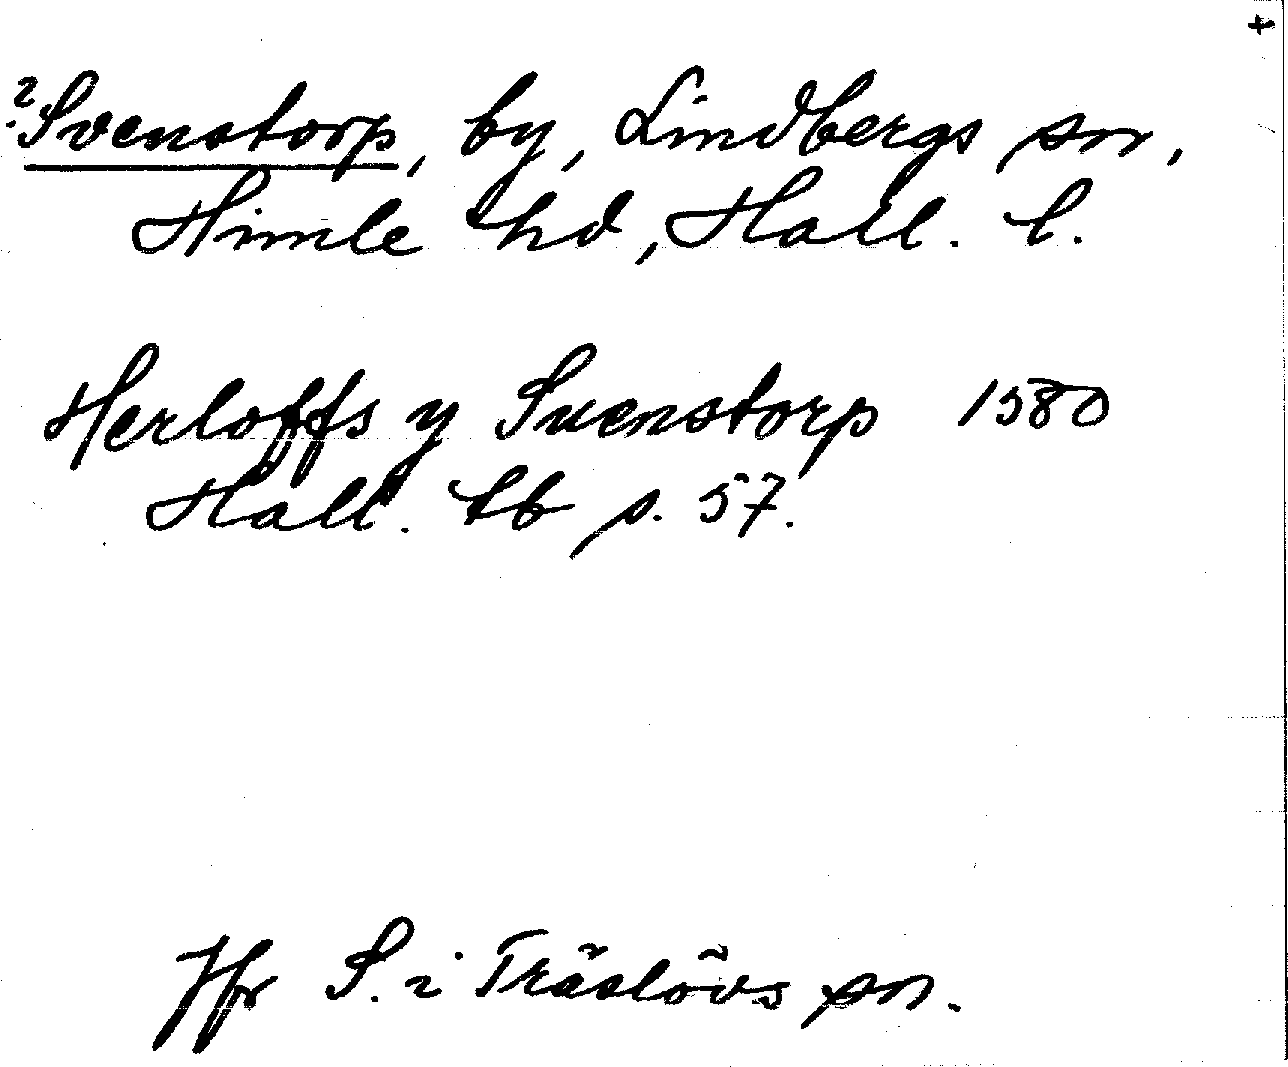 +
?Svenstorp, by, Lindbergs sn,
Himle hd, Hall. l.
Herloffs y Svenstorp 1580
Hall. tb s. 57.
Jfr S. i Träslövs sn.